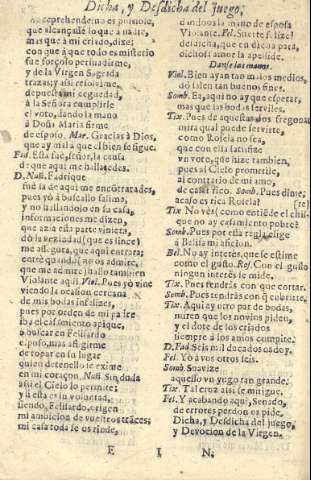 Dicha, y Desdicha del juego,
no se prehende, no es posible,
que alcançasse lo que a nadie,
mas que à mi criado, dixe:
con que à que todo es misterio
fue forçoso persuadirme,
y de la Virgen Sagrada
trazas; y assi
depuesta mi ceguedad,
à la Señora cumplirle
el voto, dando la mano
à Doña Maria firme
de esposo. Mar. Gracias à Dios,
que ay mula que el bien se sigue.
Fad. Esta fue, señor, la causa
de que aqui me hallasedes.
D. Nuñ. Fadrique
fue la de aqui me encontrades,
pues yò à buscallo salimo,
y no hallandolo en su casa,
informaciones me dizen,
que azia esta parte vinieta,
dò la vezindad (que es lince)
me assegura, que aqui entrora;
entrè quando no os admire,
que me admire) hallo tambien
Violante aqui. Viol. Pues yò vine
viendo la ocasion cercana
de mis bodas infelizes,
pues por orden de mi padre
iba el casamiento apique,
à buscar en Felisardo
esposo, mas
de topar en su lugar
quien de tenello se exime
en mi coraçon. Nuñ. Sin duda
assi el Cielo lo permite;
y si esta es su voluntad,
siendo, Felisardo, origen
mi ambicion de vuestros
mi casa toda se os rinde,
dandoos la mano de esposa
Violante. Fel. Suerte felize!
desdicha, que en dicha para,
dichosa amor la apellide.
Danse las manos.
Viol. Bien ayan tan malos medios,
dò salen tan buenos fines.
Somb. Ea, aqui no ay que esperar,
mas que las bodas serviles.
Tix. Pues de aquestas dos fregonas
mira qual puede servirte,
como Rosela no sea,
que con ella satisfize
vn voto, que hize tambien,
pues al Cielo prometile,
al contrario de mi amo,
de casar rico. Somb. Pues dime,
acaso es rica Rosela? [te]
Tix. No vès (como entiède el chis-
que no ay casamiento pobre?
Somb. Pues por essa regla elige
à Belisa mi aficion.
Bel. No ay interès, que se estime
como el gusto. Ros. Con el gusto
ningun interès se mide.
Tix. Pues tendràs con que cortar.
Somb. Pues tendràs con q̃ cubrirte,
Tix. Aqui ay otro par de bodas,
miren que los novios piden,
y el dote de los criados
siempre à los amos compite.
D. Fad. Seis mil ducados os doy.
Fel. Yò à vos otros seis.
Somb. Suavize
aquello vn yugo tan grande.
Tix. Tal cruz assi se mitigue.
Fel. Y acabando aqui, Senado,
de errores perdon os pide,
Dicha, y Desdicha del juego,
y Devocion de la Virgen.
F I N.